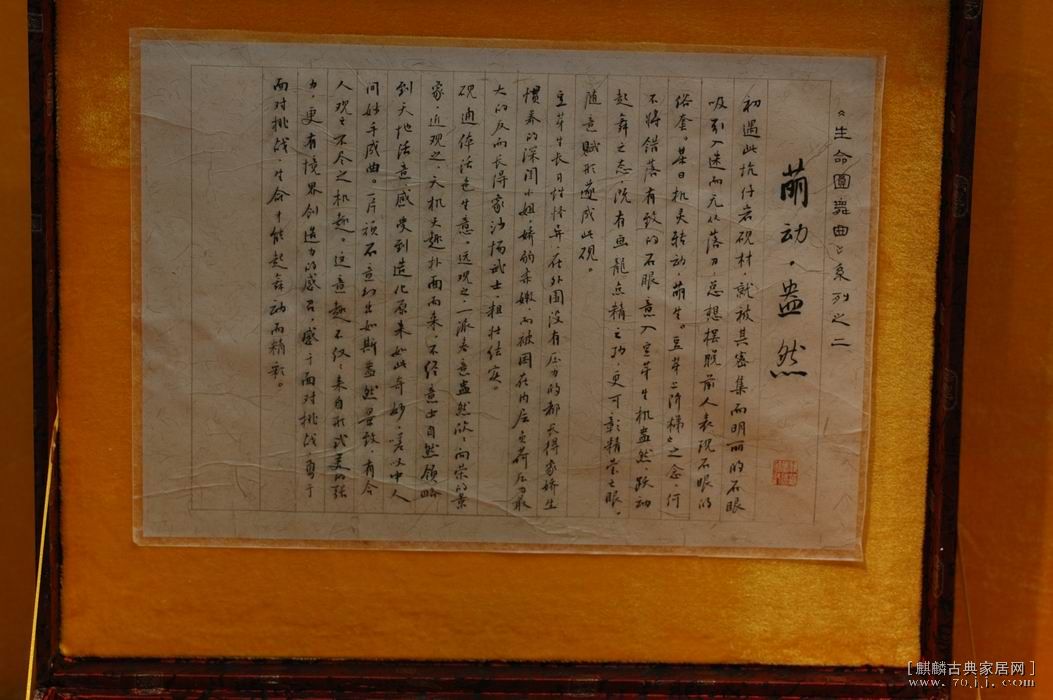 《生命圆舞曲》系列之二
萌动·盎然
初遇此坑仔岩砚材，就被其密集而明丽的石眼
吸引入迷而无从落刀，总想摆脱前人表现石眼的
俗套。某日机灵转动，萌生。豆芽与阶梯之念，何
不将错落有致的石眼意入豆芽生机盎然、跃动
起舞之态，既有画龙点精之功，更可彰精荣之眼，
随意赋形遂成此砚。
豆芽生长日性怪异，在外围没有压力的都长得象娇生
惯养的深闺小姐娇的柔嫩，而被困在内层负荷压力最
大的反而长得象沙场武士，粗壮结实。
砚通体活色生意，远观之，一派春意盎然欣欣向荣的景
象，近观之，天机天趣扑面而来，不经意由自然领略
到天地活意，感受到造化原来如此奇妙，
间妙手成曲。片顽石意幻出如斯盎然景致，有令
人观之不尽之机趣。这意趣不仅仅来自形式美的张
力，更有境界创造力的感召，感于面对挑战，勇于
面对挑战，生命才能起舞动而精彩。
[麒麟古典家居网]
www.70jj.com